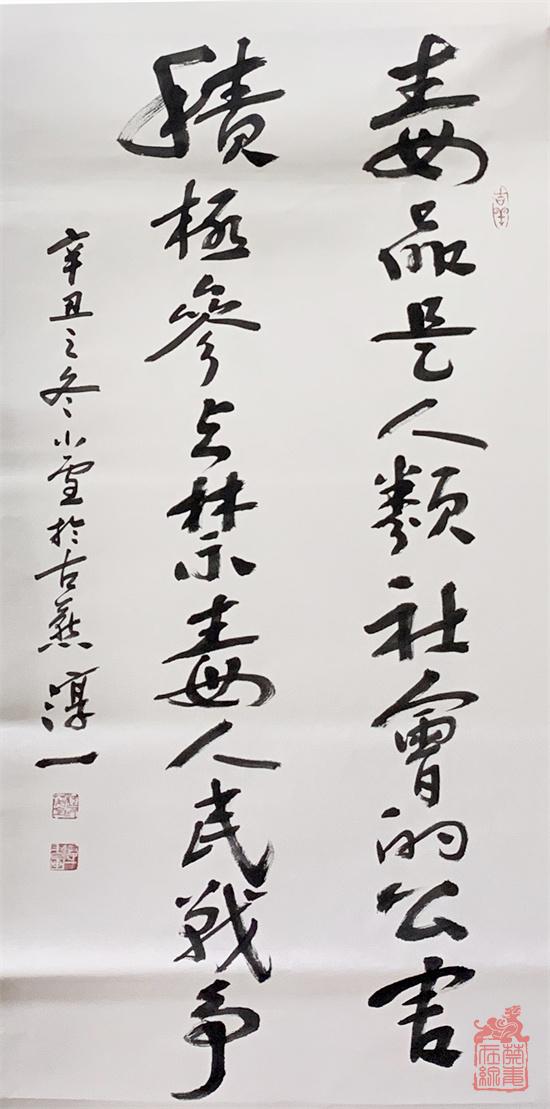 毒品是人類社會的公害
積極參与禁毒人民戰争
辛丑之冬小雪於古燕 淳一